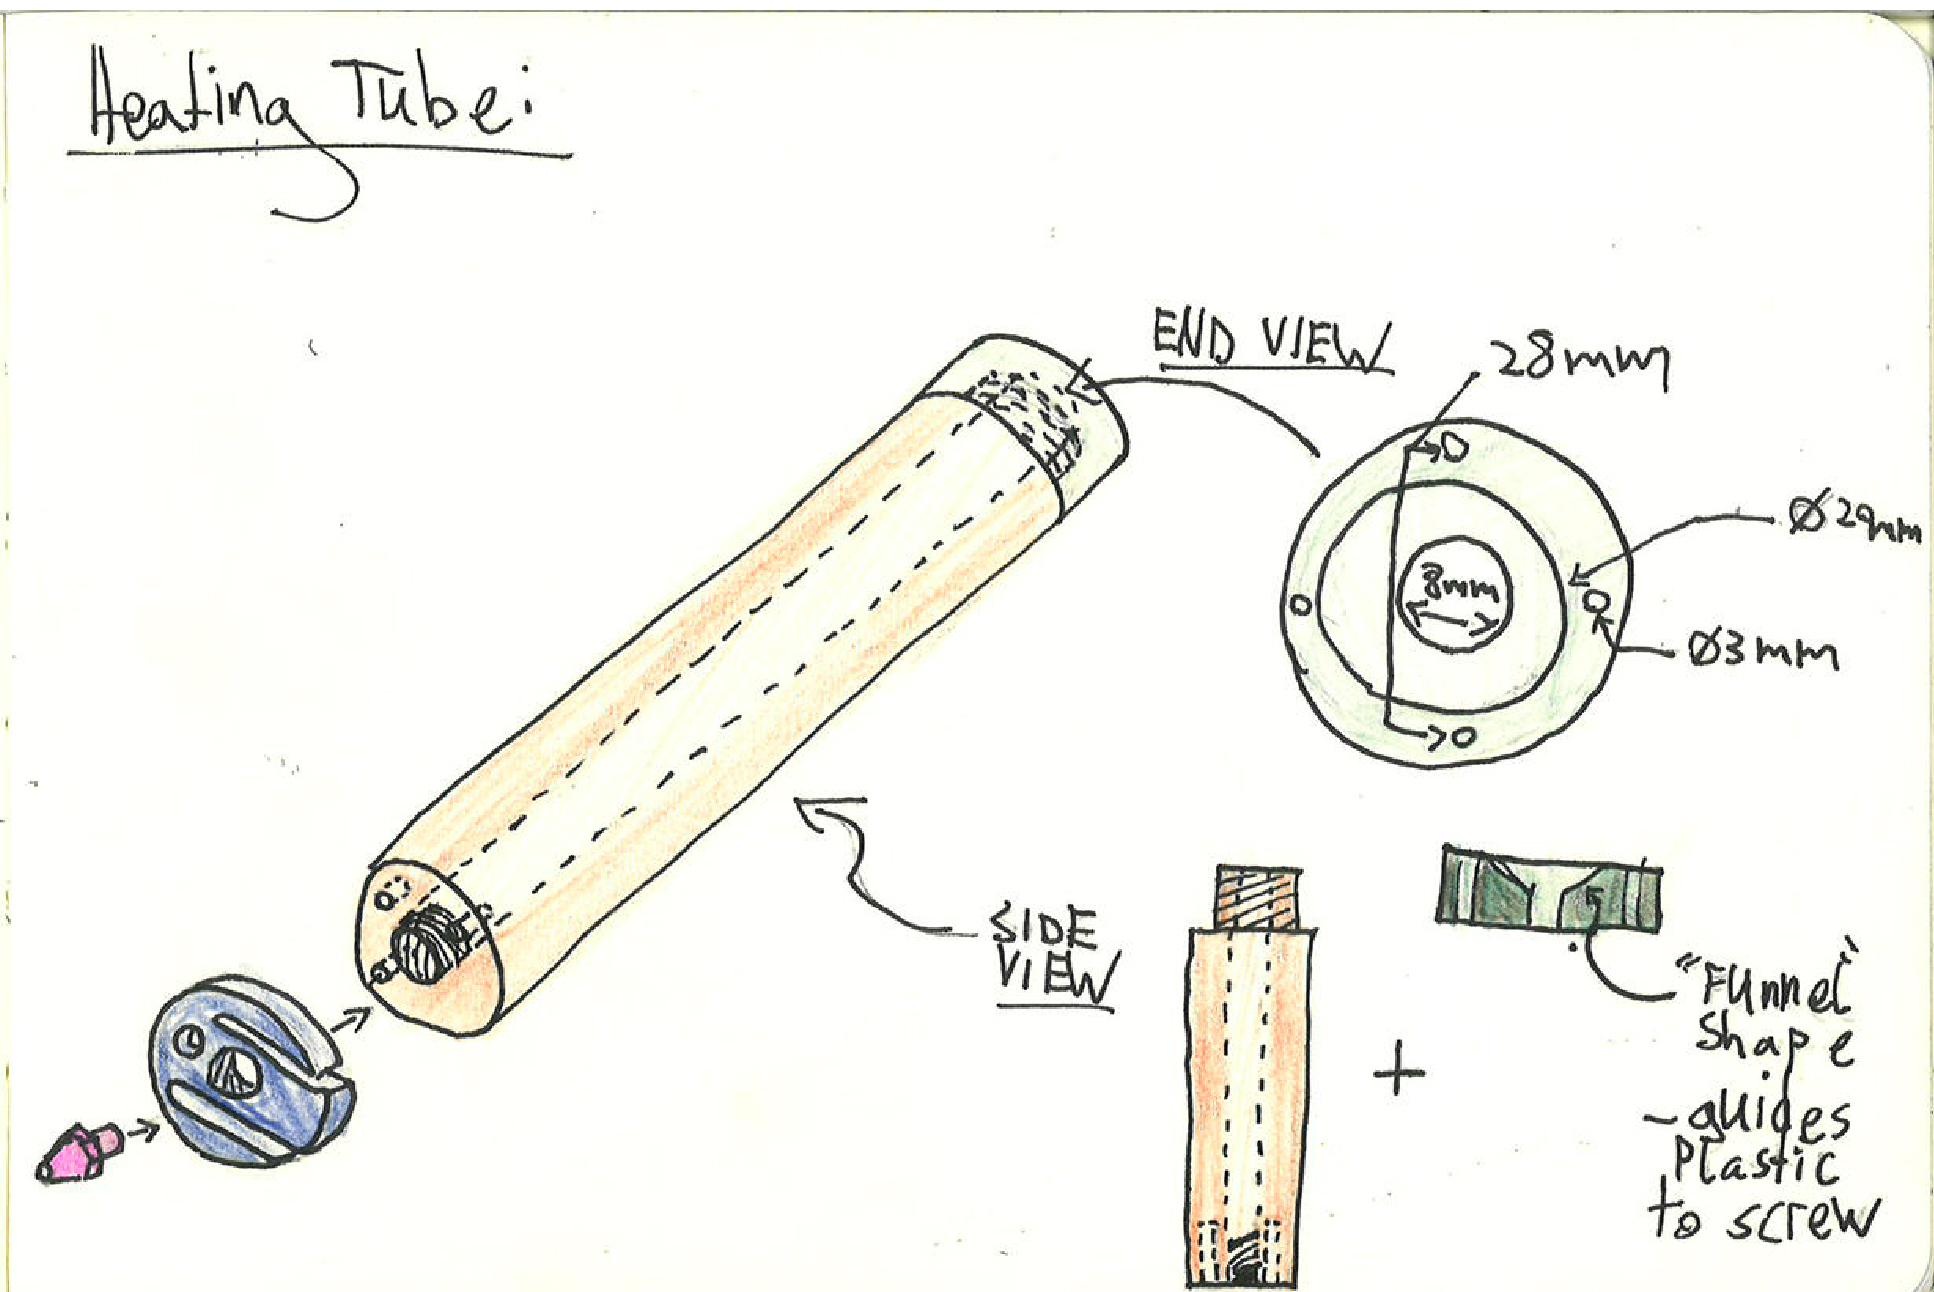 Heating Tube:
END VIEW
28mm
Ø29mm
8mm
Ø3mm
SIDE
VIEW
+
"Funnel"
Shape
- guides
Plastic
to screw